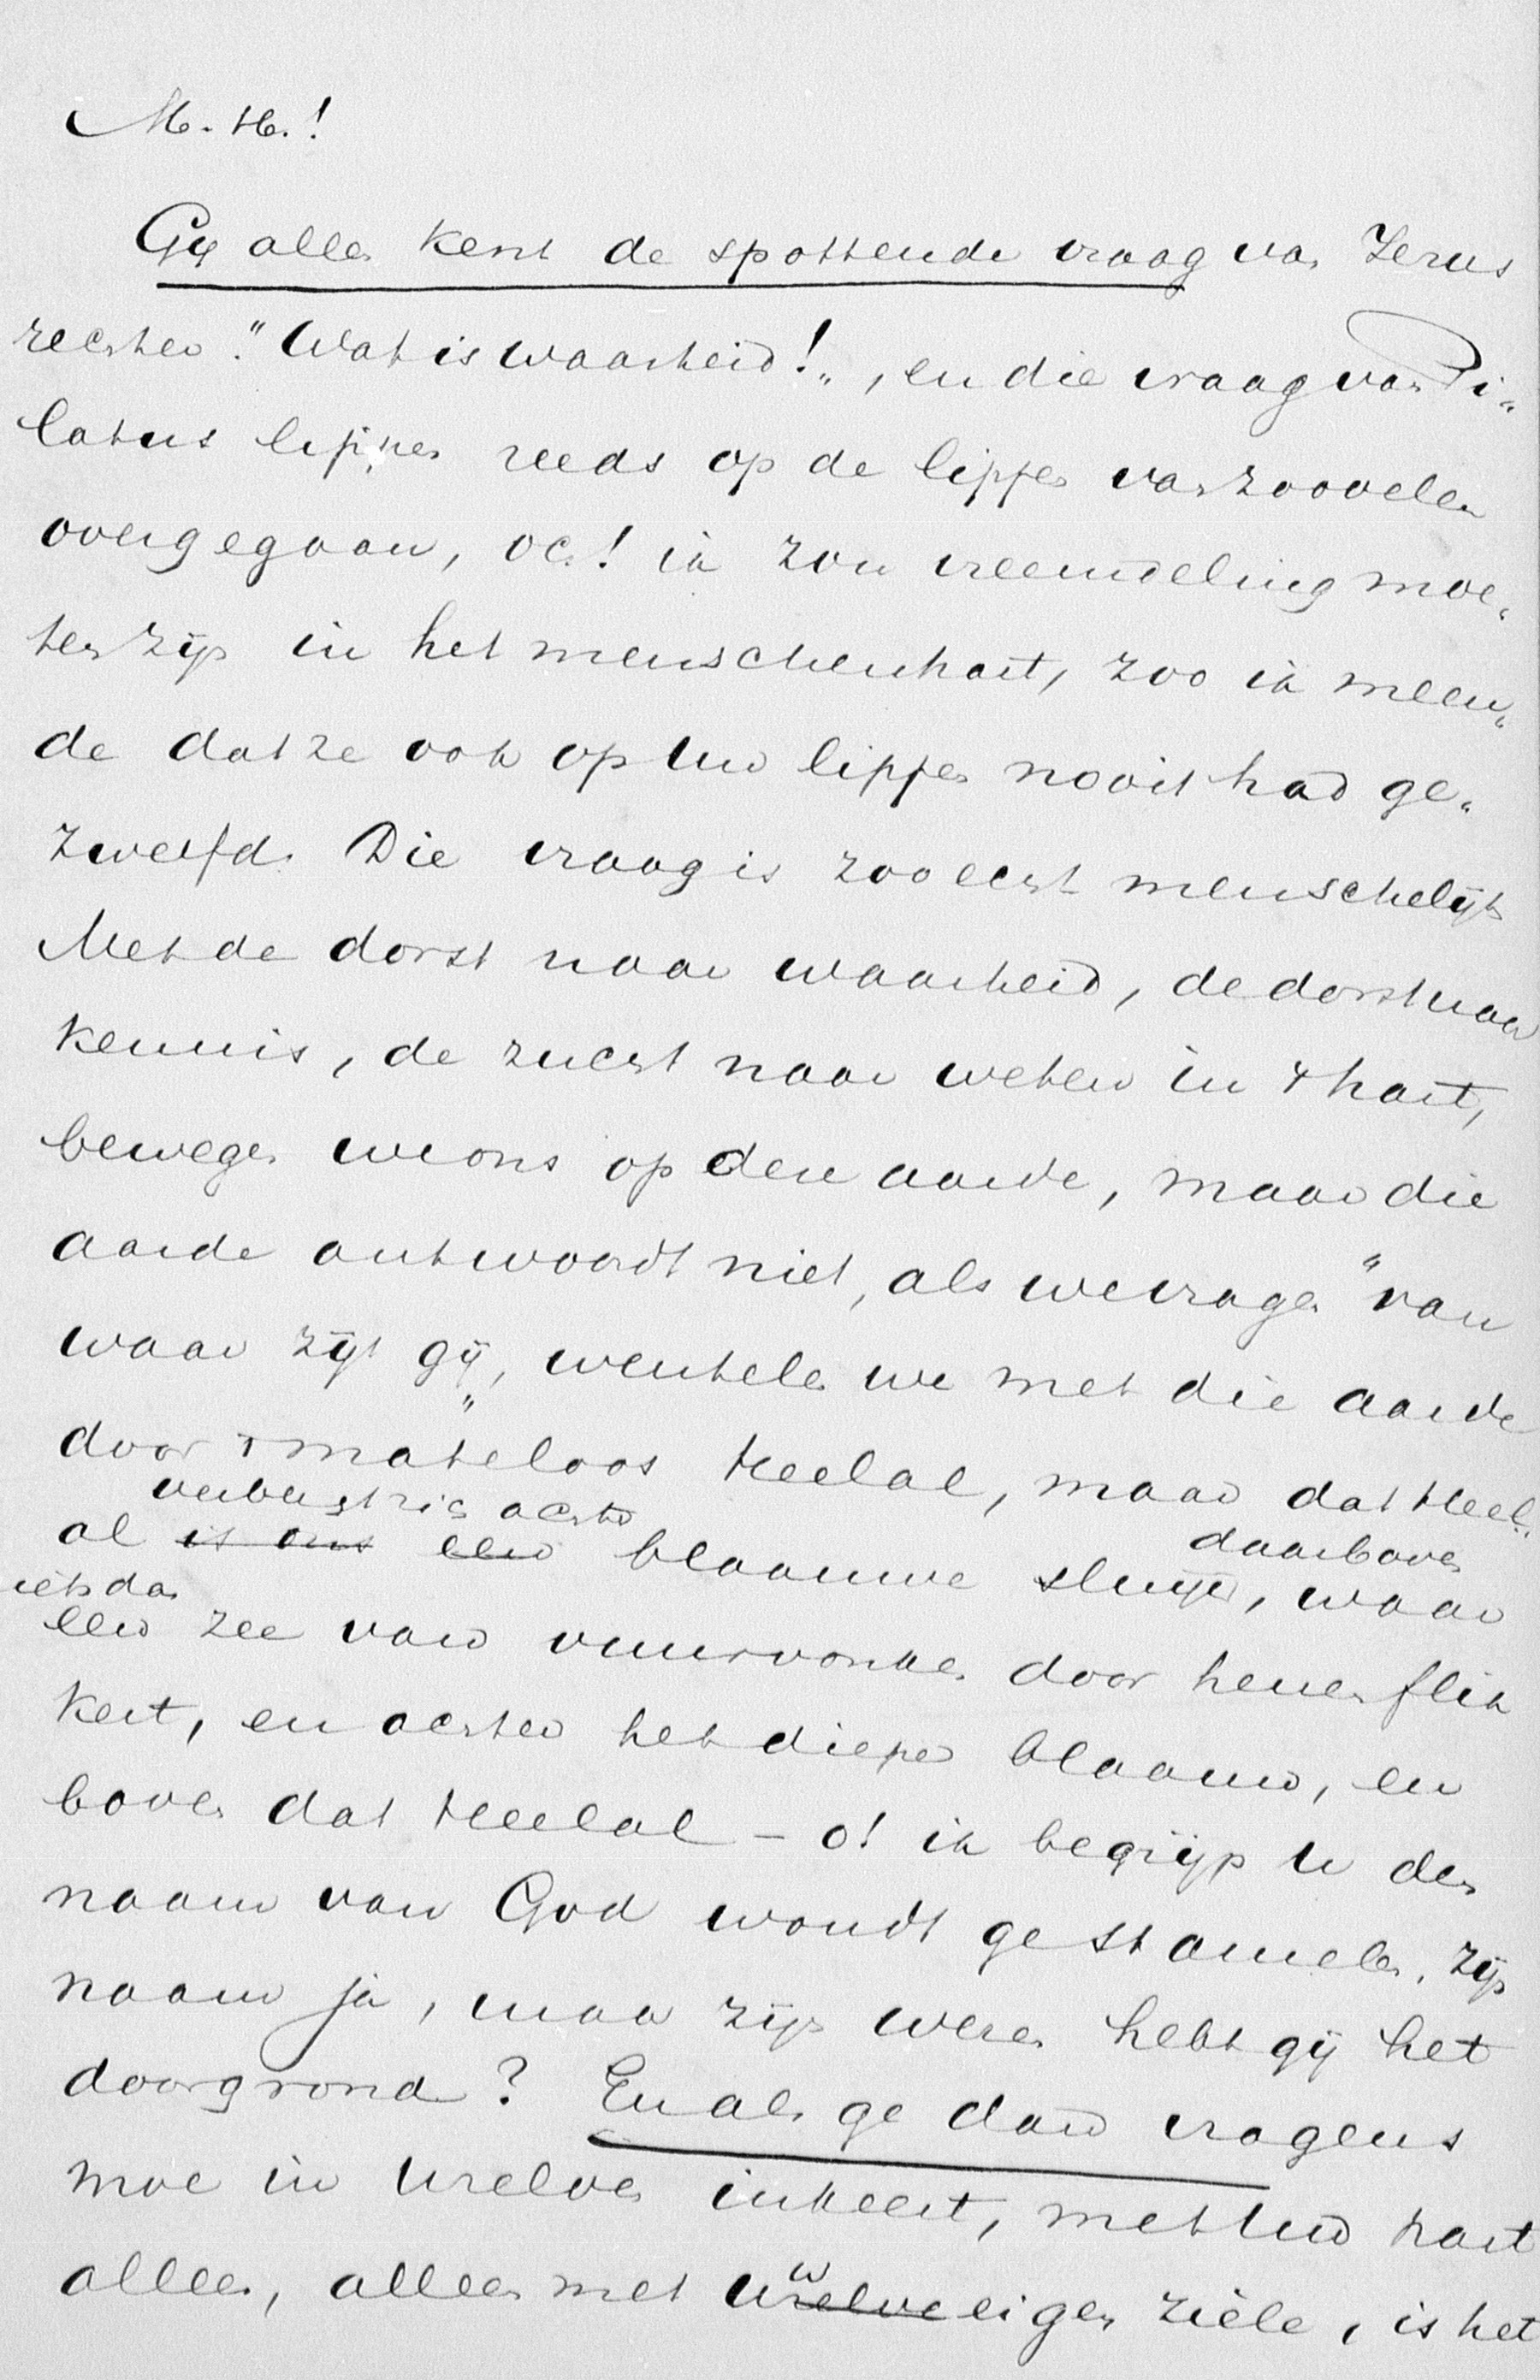 M. H.!
Gij allen kent de spottende vraag van Jezus
rechter "Wat is waarheid!", en die vraag van Pi-
latus lippen reeds op de lippen van zoovelen
overgegaan, och! ik zou vreemdeling moe-
ten zijn in het menschenhart, zoo ik meen-
de dat ze ook op Uw lippen nooit had ge-
zweefd. Die vraag is zoo echt menschelijk
Met de dorst naar waarheid, de dorst naar
kennis, de zucht naar weten in 't hart,
bewegen we ons op deze aarde, maar die
aarde antwoordt niet, als we vragen "van
waar zijt gij", wentelen we met die aarde
door 't mateloos Heelal, maar dat Heel-
verbergt zich achter
al is ons een blaauwe sluijer, daarboven, waar
iets dan
een zee van vuurvonken door henen flik
kert, en achter het diepe blaauw, en
boven dat Heelal – o! ik begrijp U den
naam van God wordt gestameld, zijn
naam ja, maar zijn wezen hebt gij het
doorgrond? En als ge dan vragens
moe in Uzelven inkeert, met Uw hart
alleen, alleen met Uzelve Uw eigen ziele, is het